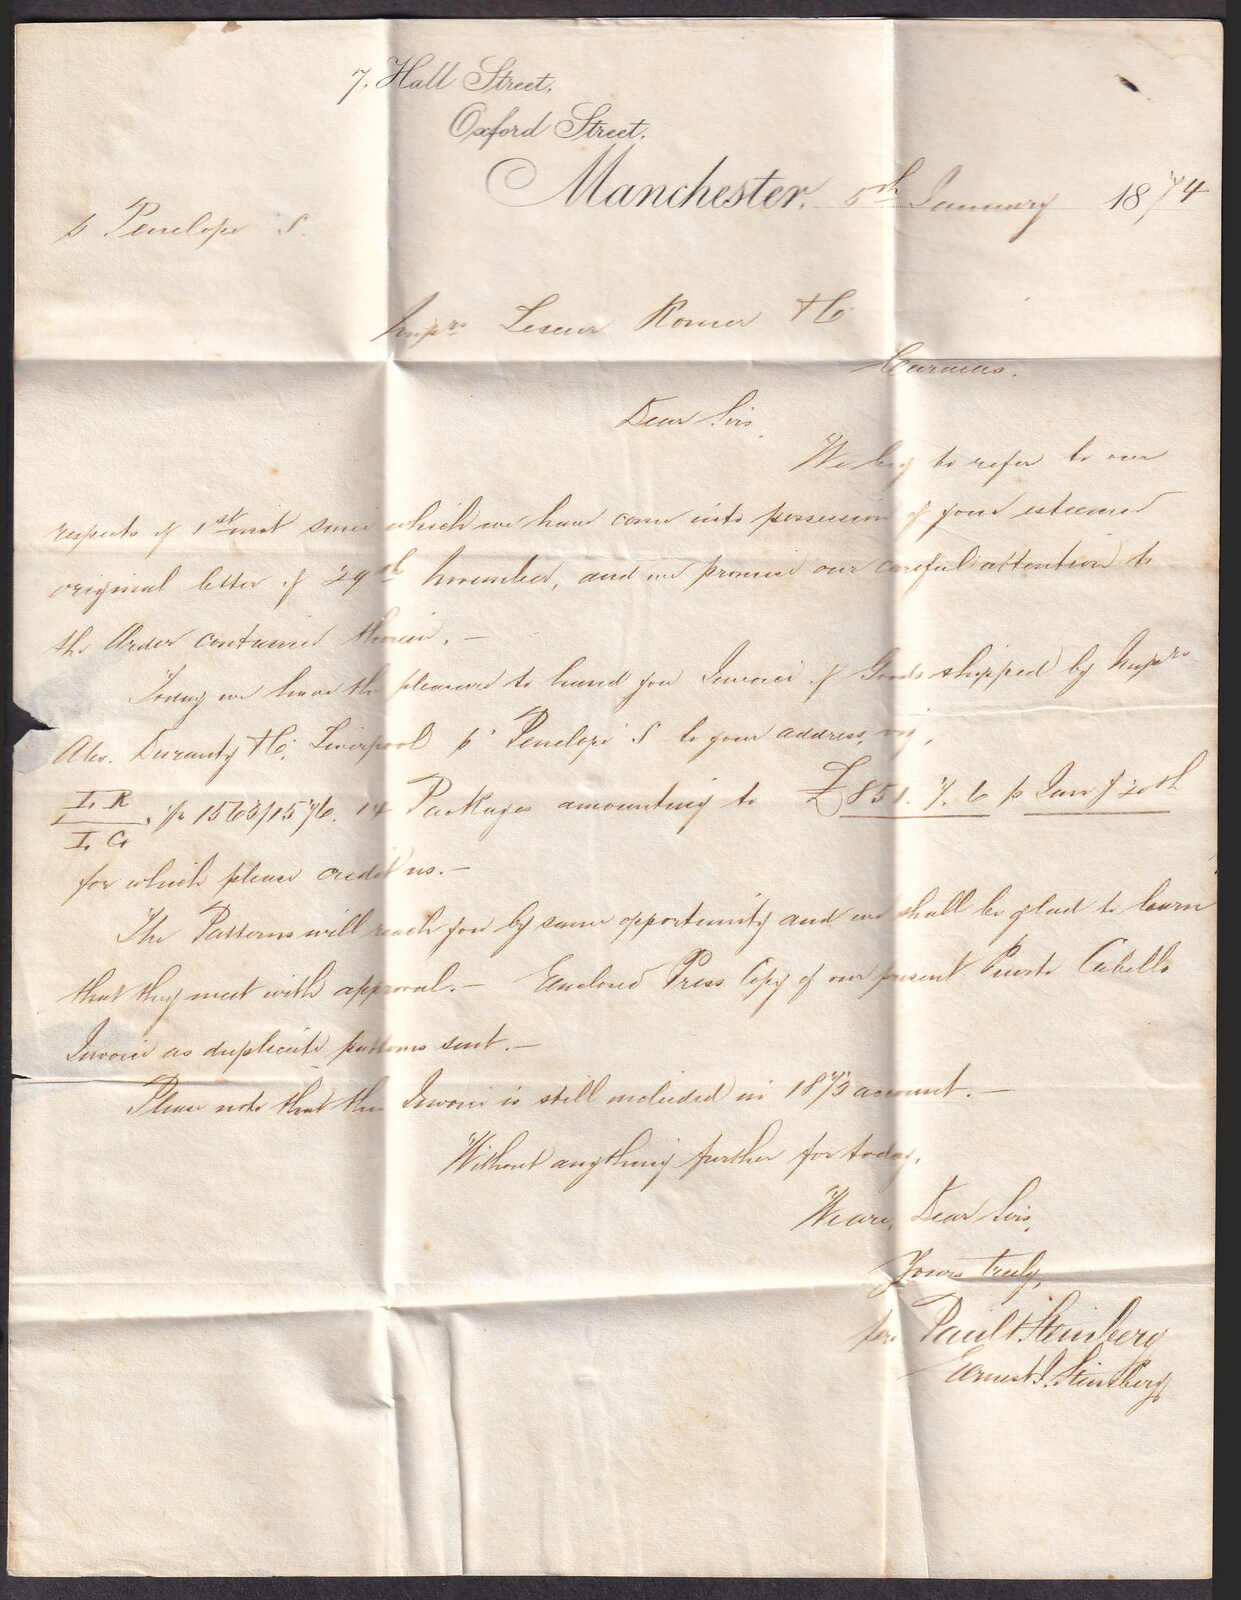 7, Hall Street,
Oxford Street,
Manchester, 5th January 1874
p Penelope S.
Messrs Leseur Romer & Co
Caracas.
Dear Sirs,
We beg to refer to our
respects of 1st inst since which we have come into possession of your esteemed
original letter of 29th November, and we promise our careful attention to
the Order contained therein. —
Today we have the pleasure to hand you Invoice of Goods shipped by Messrs
Alex. Duranty & Co. Liverpool p "Penelope" S to your address, viz,
L R
I. C , No 1563/1576. 14 Packages amounting to £851. 7. 6 p Jany 20th
for which please credit us. —
The Patterns will reach you by same opportunity and we shall be glad to learn
that they meet with approval. — Enclosed Press Copy of our present Puerto Cabello
Invoice as duplicate patterns sent. —
Please note that this Invoice is still included in 1873 account. —
Without anything further for today,
We are, Dear Sirs,
Yours truly,
for Paul & Steinberg
Ernest J. Steinberg